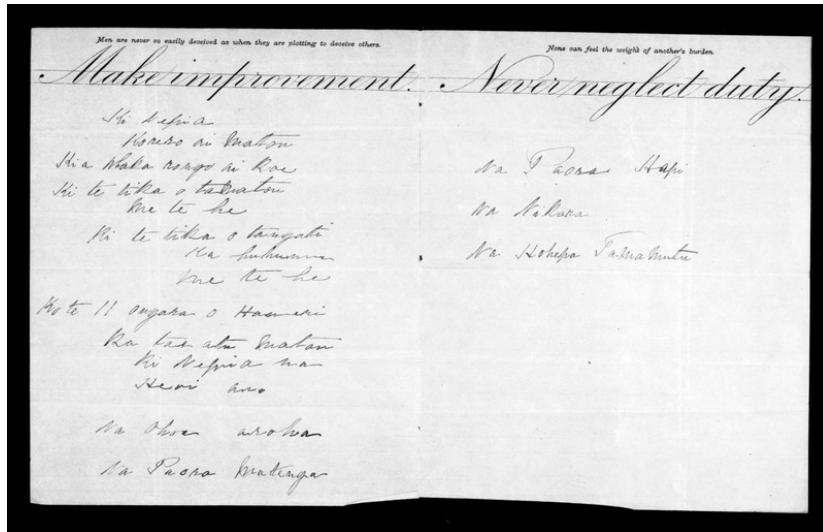 Men are never so easily deceived as when they are plotting to deceive others.
Make improvement.
Ki Nepia
Korero ai Matou
Kia Whaka rongo ai Koe
Ki te tika o tatou
me te he
Ki te tika o tangati
Ka
me te he
Ko te 11 ongara o Hanueri
Ka tae atu Matou
Ki Nepia na
Heoi ano
Na Ohou aroha
Na Paora Matenga
None can feel the weight of another's burden.
Never neglect duty.
Na Paora Hapi
Na Nikora
Na Hohepa Tamamutu